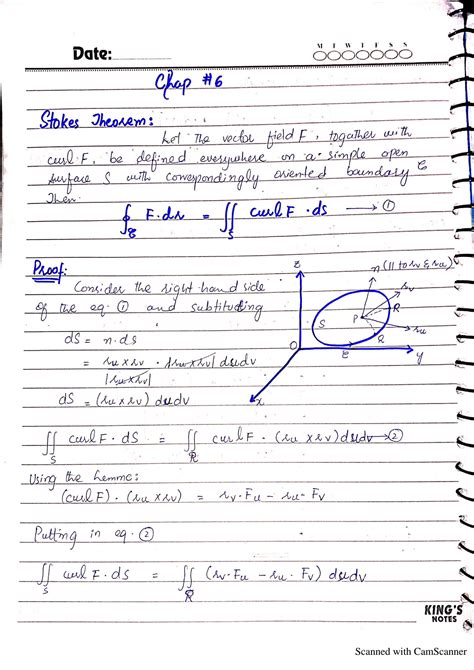 Date:
M T W T F S S
Chap #6
Stokes Theorem:
Let the vector field F, together with
curl F, be defined everywhere on a simple open
surface S with correspondingly oriented boundary C
Then
∮_C F·dr = ∬_S curl F · dS → ①
Proof:
Consider the right hand side
of the eq ① and subtituting
dS = n·ds
= ru×rv / |ru×rv| · |ru×rv| dudv
dS = (ru×rv) dudv
z
n (|| to rv & ru)
rv
R
S
P
ru
R
O
C
y
x
∬_S curl F · dS = ∬_R curl F · (ru×rv) dudv → ②
Using the Lemma:
(curl F) · (ru×rv) = rv·Fu − ru·Fv
Putting in eq. ②
∬_S curl F · dS = ∬_R (rv·Fu − ru·Fv) dudv
KING'S
NOTES
Scanned with CamScanner